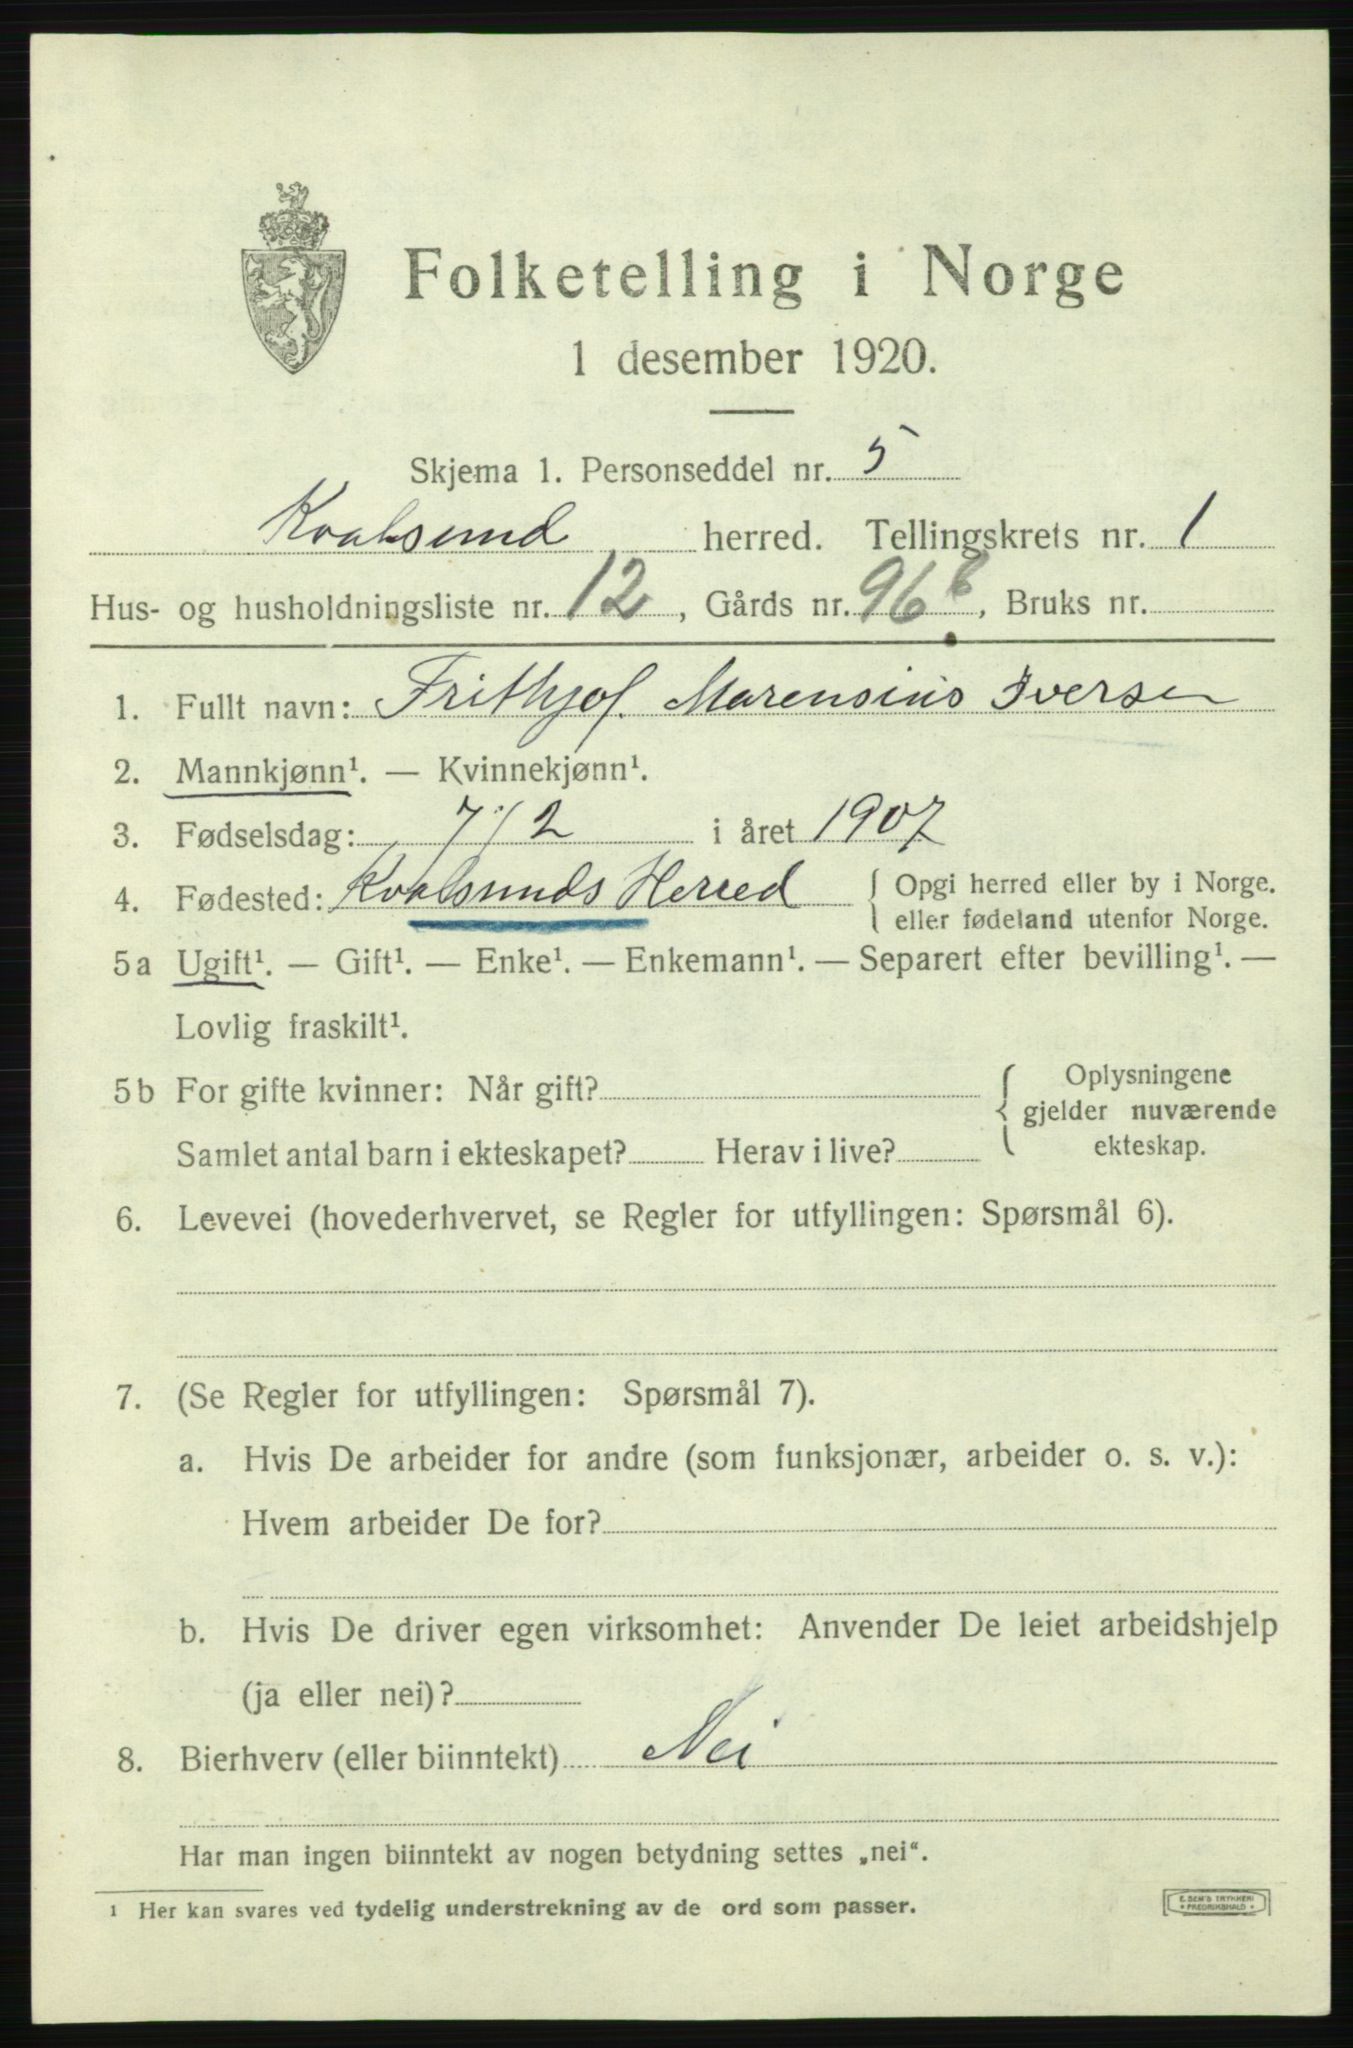 Folketelling i Norge
1 desember 1920.
Skjema 1. Personseddel nr. 5
Kvalsund herred. Tellingskrets nr. 1
Hus- og husholdningsliste nr. 12, Gårds nr. 96, Bruks nr.
1. Fullt navn: Frithjof Marensius Iversen
2. Mannkjønn¹. — Kvinnekjønn¹.
3. Fødselsdag: 7/2 i året 1907
4. Fødested: Kvalsunds Herred { Opgi herred eller by i Norge.
eller fødeland utenfor Norge.
5a Ugift¹. — Gift¹. — Enke¹. — Enkemann¹. — Separert efter bevilling¹. —
Lovlig fraskilt¹.
5b For gifte kvinner: Når gift? { Oplysningene
gjelder nuværende
Samlet antal barn i ekteskapet? Herav i live? ekteskap.
6. Levevei (hovederhvervet, se Regler for utfyllingen: Spørsmål 6).
7. (Se Regler for utfyllingen: Spørsmål 7).
a. Hvis De arbeider for andre (som funksjonær, arbeider o. s. v.):
Hvem arbeider De for?
b. Hvis De driver egen virksomhet: Anvender De leiet arbeidshjelp
(ja eller nei)?
8. Bierhverv (eller biinntekt) Nei
Har man ingen biinntekt av nogen betydning settes „nei“.
¹ Her kan svares ved tydelig understrekning av de ord som passer.
E. SEM'S TRYKKERI
FREDRIKSHALD